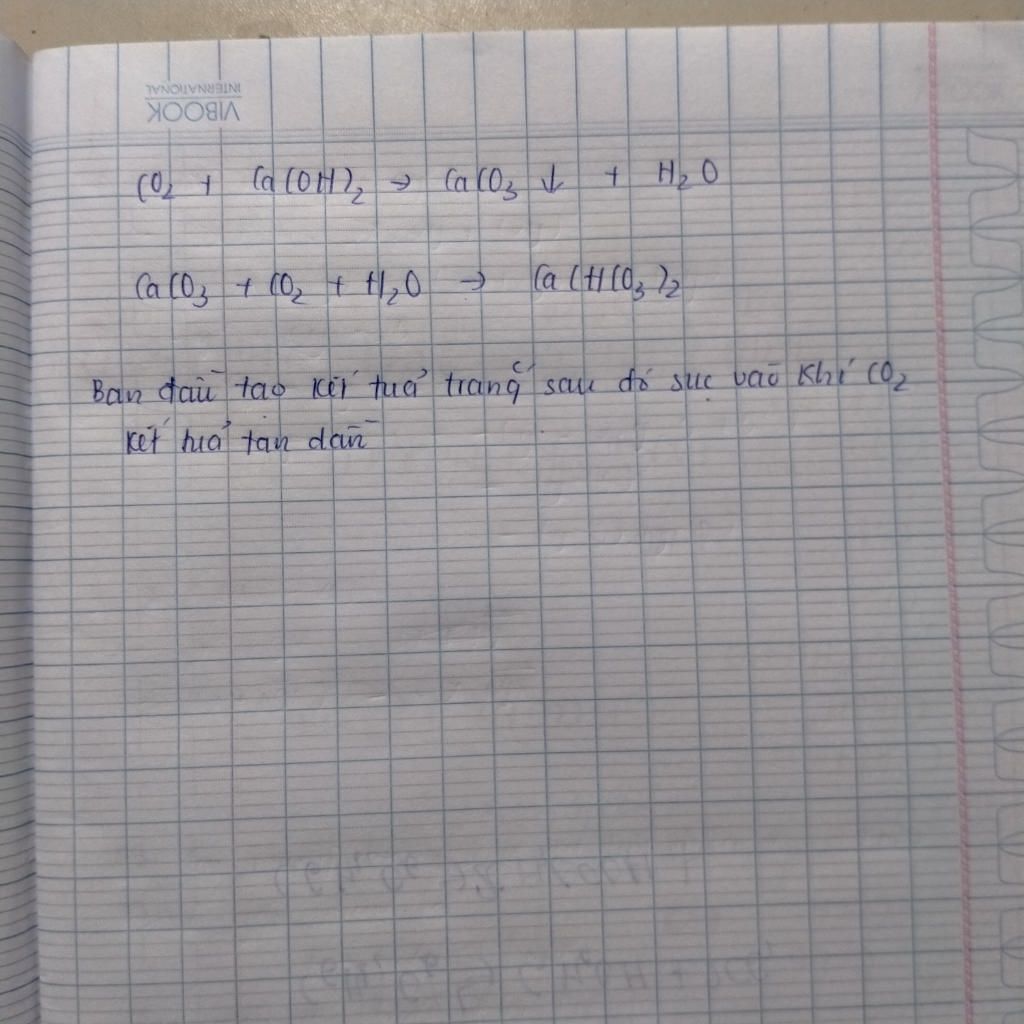 VIBOOK
INTERNATIONAL
CO₂ + Ca(OH)₂ → CaCO₃ ↓ + H₂O
CaCO₃ + CO₂ + H₂O → Ca(HCO₃)₂
Ban đầu tạo kết tuả trắng sau đó sục vào khí CO₂
kết tuả tan dần